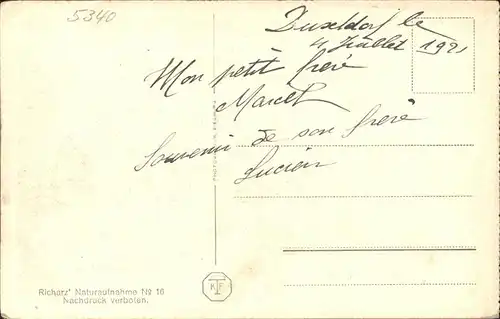 5340
Dusseldorf le
4 Juillet 1921
Mon petit frere
Marcel
Souvenir de son frere
Lucien
Richarz' Naturaufnahme No 16
Nachdruck verboten.